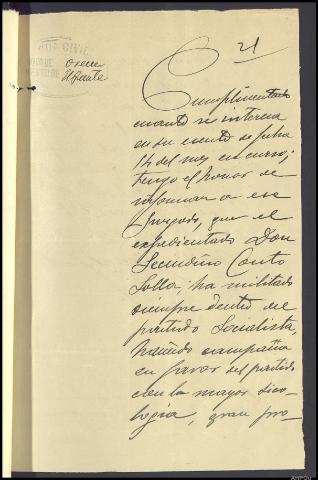 21
CIVIL
Orense
Cumplimentado
cuanto se interesa
en su escrito de fecha
14 del mes en curso;
tengo el honor de
informar a ese
Juzgado, que el
expedientado Don
Secundino Couto
Solla, ha militado
siempre dentro del
partido Socialista,
haciendo campaña
en favor del partido
con la mayor
gran pro-